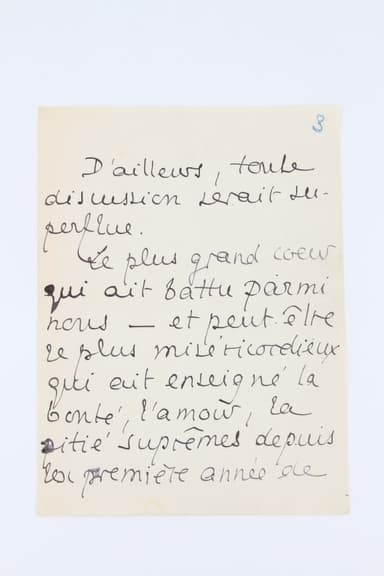 3
D'ailleurs, toute
discussion serait su-
perflue.
Le plus grand coeur
qui ait battu parmi
nous — et peut-être
le plus miséricordieux
qui ait enseigné la
bonté, l'amour, la
pitié suprêmes depuis
la première année de